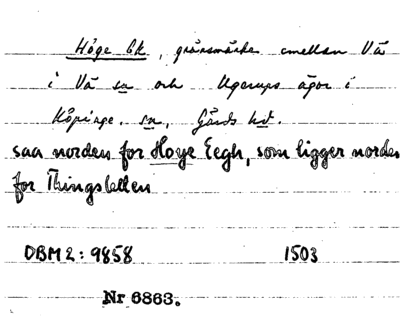 Höge Ek, gränsmärke emellan Vä
i Vä sn och Ugerups ägor i
Köpinge, sn, Gärds hd.
saa norden for Hoye Eegh, som ligger norden
for Thingsletten
DBM 2: 9858 1503
Nr 6863.